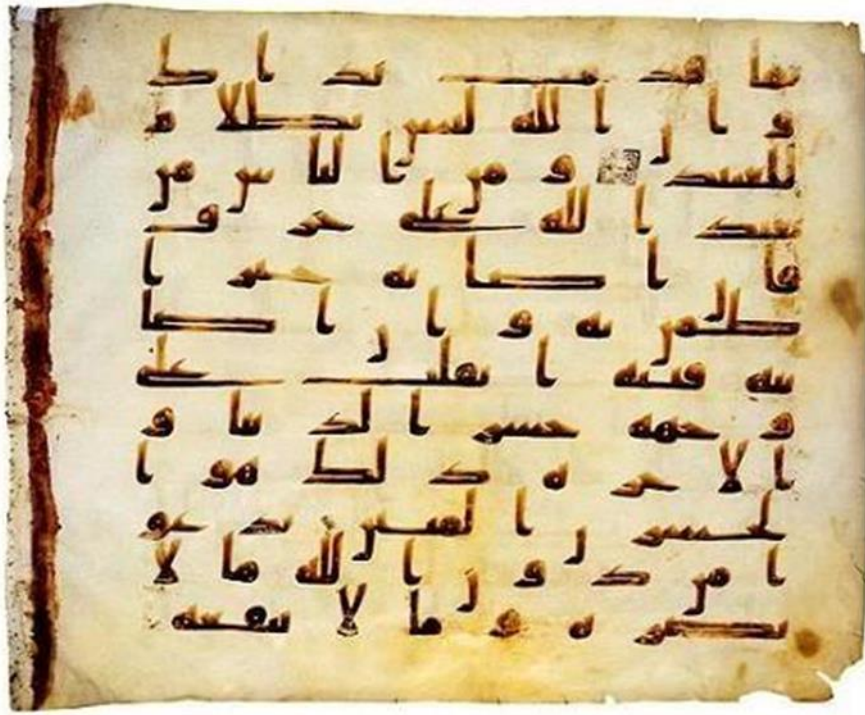 بما قدمت يداك
وان الله ليس بظلام
للعبيد ومن الناس من
يعبد الله على حرف
فان اصابه خير ا
طمان به وان اصا
بته فتنه انقلب على
وجهه خسر الدنيا و
الاخره ذلك هو ا
لخسرن المبين يدعو
ا من دون الله ما لا
يضره وما لا ينفعه